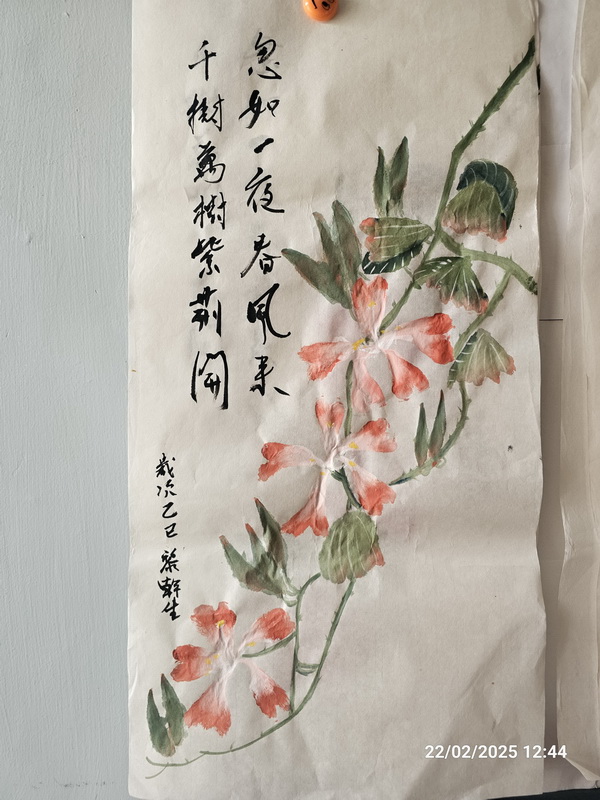 忽如一夜春風来
千樹萬樹紫荆開
歲次乙巳 梁幹生
22/02/2025 12:44